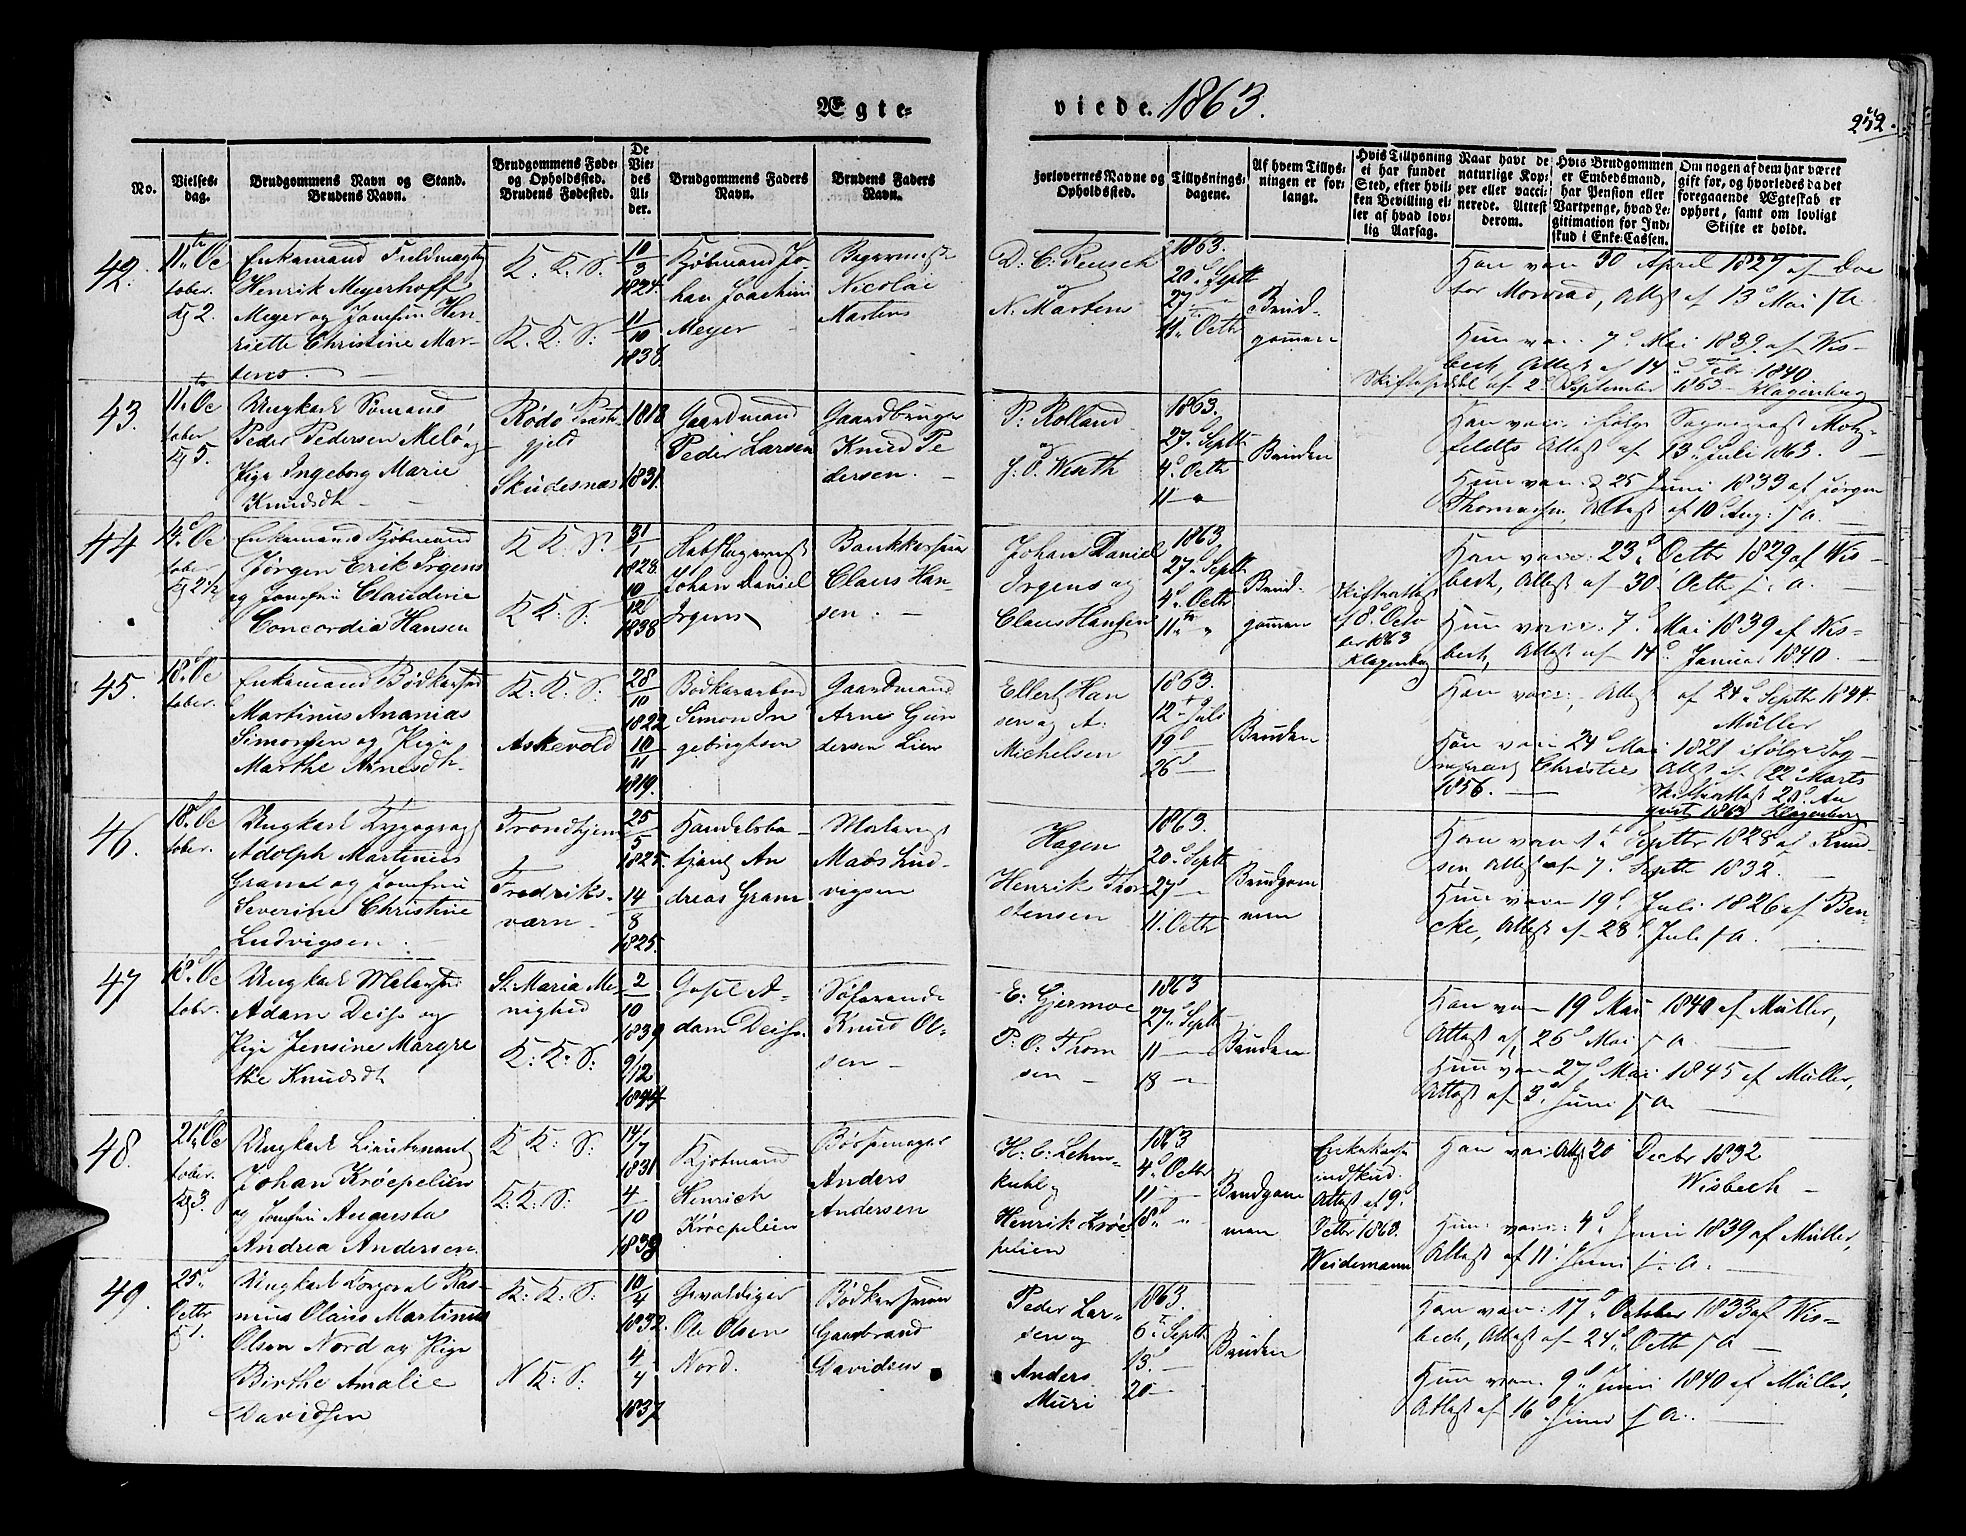 Ægte=
viede. 1863.
252.
No.
Vielses-
dag.
Brudgommens Navn og Stand.
Brudens Navn.
Brudgommens Føde-
og Opholdssted.
Brudens Fødested.
De
Vie-
des
Al-
der.
Brudgommens Faders
Navn.
Brudens Faders
Navn.
Forlovernes Navne og
Opholdssted.
Tillysnings-
dagene.
Af hvem Tillys-
ningen er for-
langt.
Hvis Tillysning
ei har fundet
Sted, efter hvil-
ken Bevilling el-
ler af hvad lov-
lig Aarsag.
Naar havt de
naturlige Kop-
per eller vacci-
nerede. Attest
derom.
Hvis Brudgommen
er Embedsmand,
har Pension eller
Vartpenge, hvad Le-
gitimation for Ind-
skud i Enke-Cassen.
Om nogen af dem har været
gift før, og hvorledes da det
foregaaende Ægteskab er
ophørt, samt om lovligt
Skifte er holdt.
42.
11te Oc
tober
Kl 2.
Enkemand
Henrik Meyerhoff
Meyer og Jomfru Hen-
riette Christine Mar-
tens. —
K: K. S:
K. K: S:
10
3
1824.
11
10
1838.
Kjøbmand Jo-
han Joachim
Meyer
Bagermester
Nicolai
Martens
D: C: Reusch
og
N. Martens
1863.
20d Septb
27 —
11te Octbr
Brud-
gommen
Han vac: 30 April 1827 af Doc
tor Monrad, Attest af 13d Mai s. A.
Hun vac: 7d Mai 1839 af Wis-
bech, Attest af 14d Febr 1840
Skifteseddel af 2d September 1863 Klagenberg
43.
11te Oc
tober
Kl 5.
Ungkarl Sømand
Peder Pedersen Melø og
Pige Ingeborg Marie
Knudsdt. —
Rødø Præste-
gjeld
Skudesnæs
1818
1831.
Gaardmand
Peder Larsen
Gaardbruger
Knud Pe
dersen. —
P: Rolland
og
J. O. Werth
1863.
27d Septb
4d Octbr
11 "
Bruden
Han vac: ifølge Sognepræst Motz-
feldts Attest af 13d Juli 1863. —
Hun vac: d 25 Juni 1833 af Jørgen
Thomassen, Attest af 10d Aug: s. A. —
44
14d Oc
tober
Kl 2½
Enkemand Kjøbmand
Jørgen Erik Irgens
og Jomfru Claudine
Concordia Hansen
K K: S:
K K: S:
31
1
1828.
10
12
1838
Johan Daniel
Irgens
Claus Han-
sen. —
Johan Daniel
Irgens og
Claus Hansen
1863
27d Septb
4d Octbr
11te "
Brud-
gommen
Skifteattest
af 8d Octo
ber 1863
Klagenberg
Han vac: 23d Octbr 1829 af Wis-
bech, Attest af 30 Octb s. A.
Hun vac: 7d Mai 1839 af Wis-
bech, Attest af 14d Januar 1840. —
45.
18d Oc
tober.
Enkemand Bødkersvend
Martinus Ananias
Simonsen og Pige
Marthe Arnesdt.
K: K: S:
Askevold
28
10
1822
10
11
1819.
Bødkerarbeider
Simon In
gebrigtsen
Gaardmand
Arne Gun
dersen Lien
Ellert Han
sen og A.
Michelsen
1863.
12te Juli
19d —
26d —
Bruden
Han vac:, Attest af 24d Septbr 1844.
Müller
Hun vac: 24d Mai 1821 ifølge Sog
nepræst Christies Attest af 22d Marts
1856. —
Skifteattest 28d Au
gust 1863 Klagenberg
46.
18d Oc
tober.
Ungkarl Typograph
Adolph Martinius
Gram og Jomfru
Severine Christine
Ludvigsen. —
Trondhjem
Fredriks-
værn —
25
5
1825.
14
8
1825.
Handelsbe-
tjent An
dreas Gram
Malermester
Mads Lud-
vigsen
Hagen
Henrik Thor
stensen
1863.
20d Septb
27d —
11. Octbr
Brudgom
men
Han vac: 1te Septbr 1828 af Knud
sen, Attest af 7d Septb 1832. —
Hun vac: 19d Juli 1826 af Ben-
cke, Attest af 28d Juli s. A. —
47
18d Oc
tober.
Ungkarl Malersvend
Adam Deiss og
Pige Jensine Margre
the Knudsdt
St. Maria Me-
nighed
K: K: S:
2
10
1839
9/12
1844
A-
dam Deiss.
Søfarende
Knud Ol-
sen —
E: Gjermoe
P: O: Thom
sen —
1863
27d Septb
11 —
18 —
Bruden
Han vac: 19d Mai 1840 af Müller,
Attest af 26d Mai s. A. —
Hun vac: 27d Mai 1845 af Müller,
Attest af 3d Juni s. A. —
48.
21d Oc
tober.
Kl 3.
Ungkarl Lieutenant
Johan Krøepelien
og Jomfru Augusta
Andrea Andersen
K K: S:
K: K: S:
14/
7
1831
4
10
1838
Kjøbmand
Henrich
Krøepelien
Børsemager
Anders
Andersen
H: C: Lehm-
kuhl og
Henrik Krøe
pelien
1863
4d Octbr
11 —
18d "
Brudgom
men
Enkekasse
indskud.
Attest af 9d
Octbr 1863.
Weidemann
Han vac: Att: 20 Decbr 1832
Wisbech —
Hun vac: 4d Juni 1839 af Müller,
Attest af 11d Juni s. A. —
49.
25d
Octbr
Kl 1.
Ungkarl Torgval Ras-
mus Olaus Martinus
Olsen Nord og Pige
Birthe Amalie
Davidsen
K: K: S:
N K: S:
10
4
1832.
4
4
1837
Gevaldiger
Ole Olsen
Nord.
Bødkersvend
Gaasbrand
Davidsen
Peder Lar-
sen og
Anders
Muri
1863.
6te Septb
13d —
20 —
Bruden
Han vac: 17d October 1833 af Wis-
bech, Attest af 24d Octb s. A —
Hun vac: 9d Juni 1840 af Müller,
Attest af 16d Juni s. A. —